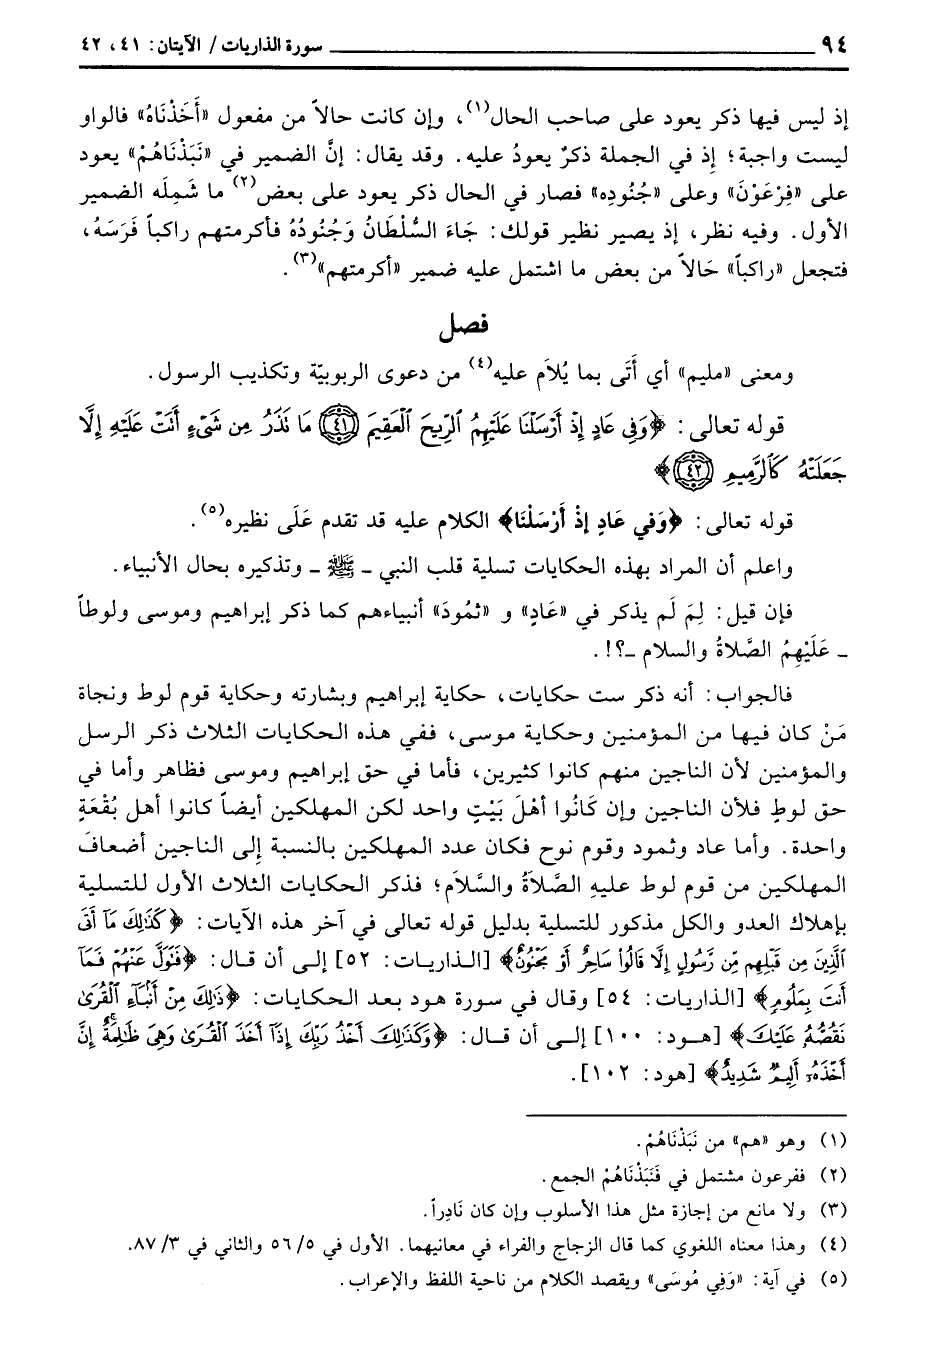 ٩٤ سورة الذاريات / الآيتان: ٤١، ٤٢
إذ ليس فيها ذكر يعود على صاحب الحال(١)، وإن كانت حالاً من مفعول «أَخَذْنَاهُ» فالواو
ليست واجبة؛ إِذ في الجملة ذكرٌ يعودُ عليه. وقد يقال: إنَّ الضمير في «نَبَذْنَاهُمْ» يعود
على «فِرْعَوْنَ» وعلى «جُنُودِه» فصار في الحال ذكر يعود على بعض(٢) ما شَمِلَه الضمير
الأول. وفيه نظر، إذ يصير نظير قولك: جَاءَ السُّلْطَانُ وَجُنُودُهُ فأكرمتهم راكباً فَرَسَهُ،
فتجعل «راكباً» حَالاً من بعض ما اشتمل عليه ضمير «أكرمتهم»(٣).
فصل
ومعنى «مليم» أي أَتَى بما يُلاَم عليه(٤) من دعوى الربوبيّة وتكذيب الرسول.
قوله تعالى: ﴿وَفِي عَادٍ إِذْ أَرْسَلْنَا عَلَيْهِمُ ٱلرِّيحَ ٱلْعَقِيمَ ٤١ مَا نَذَرُ مِن شَىْءٍ أَتَتْ عَلَيْهِ إِلَّا
جَعَلَتْهُ كَٱلرَّمِيمِ ٤٢﴾
قوله تعالى: ﴿وَفي عَادٍ إِذْ أَرْسَلْنَا﴾ الكلام عليه قد تقدم عَلَى نظيره(٥).
واعلم أن المراد بهذه الحكايات تسلية قلب النبي ـ ﷺ ـ وتذكيره بحال الأنبياء.
فإن قيل: لِمَ لَم يذكر في «عَادٍ» و «ثمُودَ» أنبياءهم كما ذكر إبراهيم وموسى ولوطاً
ـ عَلَيْهِمُ الصَّلاةُ والسلام ـ؟!.
فالجواب: أنه ذكر ست حكايات، حكاية إبراهيم وبشارته وحكاية قوم لوط ونجاة
مَنْ كان فيها من المؤمنين وحكاية موسى، ففي هذه الحكايات الثلاث ذكر الرسل
والمؤمنين لأن الناجين منهم كانوا كثيرين، فأما في حق إبراهيم وموسى فظاهر وأما في
حق لوطٍ فلأن الناجين وإن كَانُوا أهْلَ بَيْتٍ واحد لكن المهلكين أيضاً كانوا أهل بُقْعَةٍ
واحدة. وأما عاد وثمود وقوم نوح فكان عدد المهلكين بالنسبة إِلى الناجين أضعافَ
المهلكين من قوم لوط عليهِ الصَّلاَةُ والسَّلاَم؛ فذكر الحكايات الثلاث الأول للتسلية
بإهلاك العدو والكل مذكور للتسلية بدليل قوله تعالى في آخر هذه الآيات: ﴿كَذَٰلِكَ مَآ أَتَى
ٱلَّذِينَ مِن قَبْلِهِم مِّن رَّسُولٍ إِلَّا قَالُوا۟ سَاحِرٌ أَوْ مَجْنُونٌ﴾ [الذاريات: ٥٢] إلى أن قال: ﴿فَتَوَلَّ عَنْهُمْ فَمَآ
أَنتَ بِمَلُومٍ﴾ [الذاريات: ٥٤] وقال في سورة هود بعد الحكايات: ﴿ذَٰلِكَ مِنْ أَنۢبَآءِ ٱلْقُرَىٰ
نَقُصُّهُۥ عَلَيْكَ﴾ [هود: ١٠٠] إلى أن قال: ﴿وَكَذَٰلِكَ أَخْذُ رَبِّكَ إِذَآ أَخَذَ ٱلْقُرَىٰ وَهِىَ ظَٰلِمَةٌ إِنَّ
أَخْذَهُۥٓ أَلِيمٌ شَدِيدٌ﴾ [هود: ١٠٢].
(١) وهو «هم» من نَبَذْنَاهُمْ.
(٢) ففرعون مشتمل في فَنَبَذْنَاهُمْ الجمع.
(٣) ولا مانع من إجازة مثل هذا الأسلوب وإن كان نَادِراً.
(٤) وهذا معناه اللغوي كما قال الزجاج والفراء في معانيهما. الأول في ٥/ ٥٦ والثاني في ٣/ ٨٧.
(٥) في آية: «وَفِي مُوسَى» ويقصد الكلام من ناحية اللفظ والإعراب.